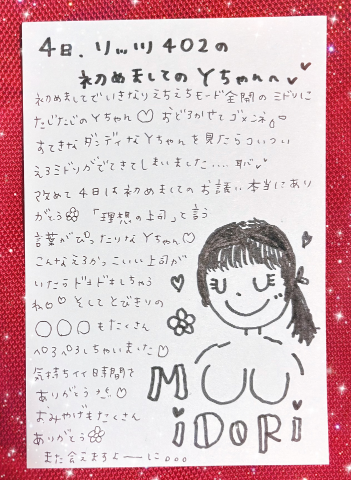 4日、リッツ402の
初めましてのYちゃんへ
初めましてでいきなりえちえちモード全開のミドリに
たじたじのYちゃん♡おどろかせてゴメンネ。
すてきなダンディなYちゃんを見たらついつい
えろミドリがでてきてしまいました....恥
改めて4日は初めましてのお誘い本当にあり
がとう「理想の上司」と言う
言葉がぴったりなYちゃん♡
こんなえろかっこいい上司が
いたらドキドキしちゃう
ね♡♡そしてとびきりの
〇〇〇もたくさん
ペロペロしちゃいました♡
気持ちイイ日時間を
ありがとう♡
おみやげもたくさん
ありがとう
また会えますよーーに。。。
MiDORi